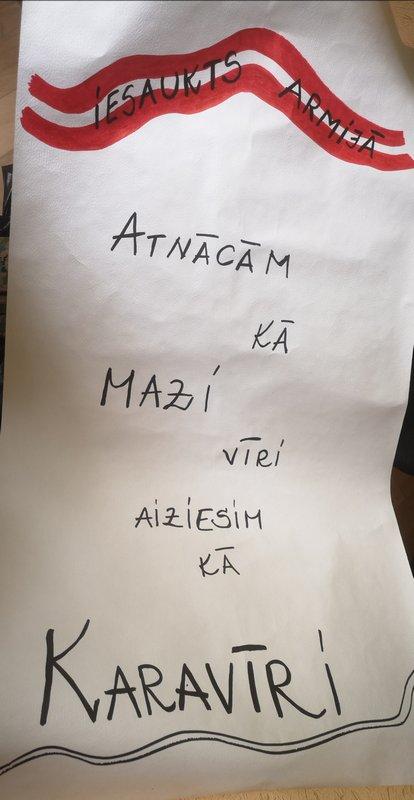 IESAUKTS ARMIJĀ
ATNĀCĀM
KĀ
MAZI
VĪRI
AIZIESIM
KĀ
KARAVĪRI